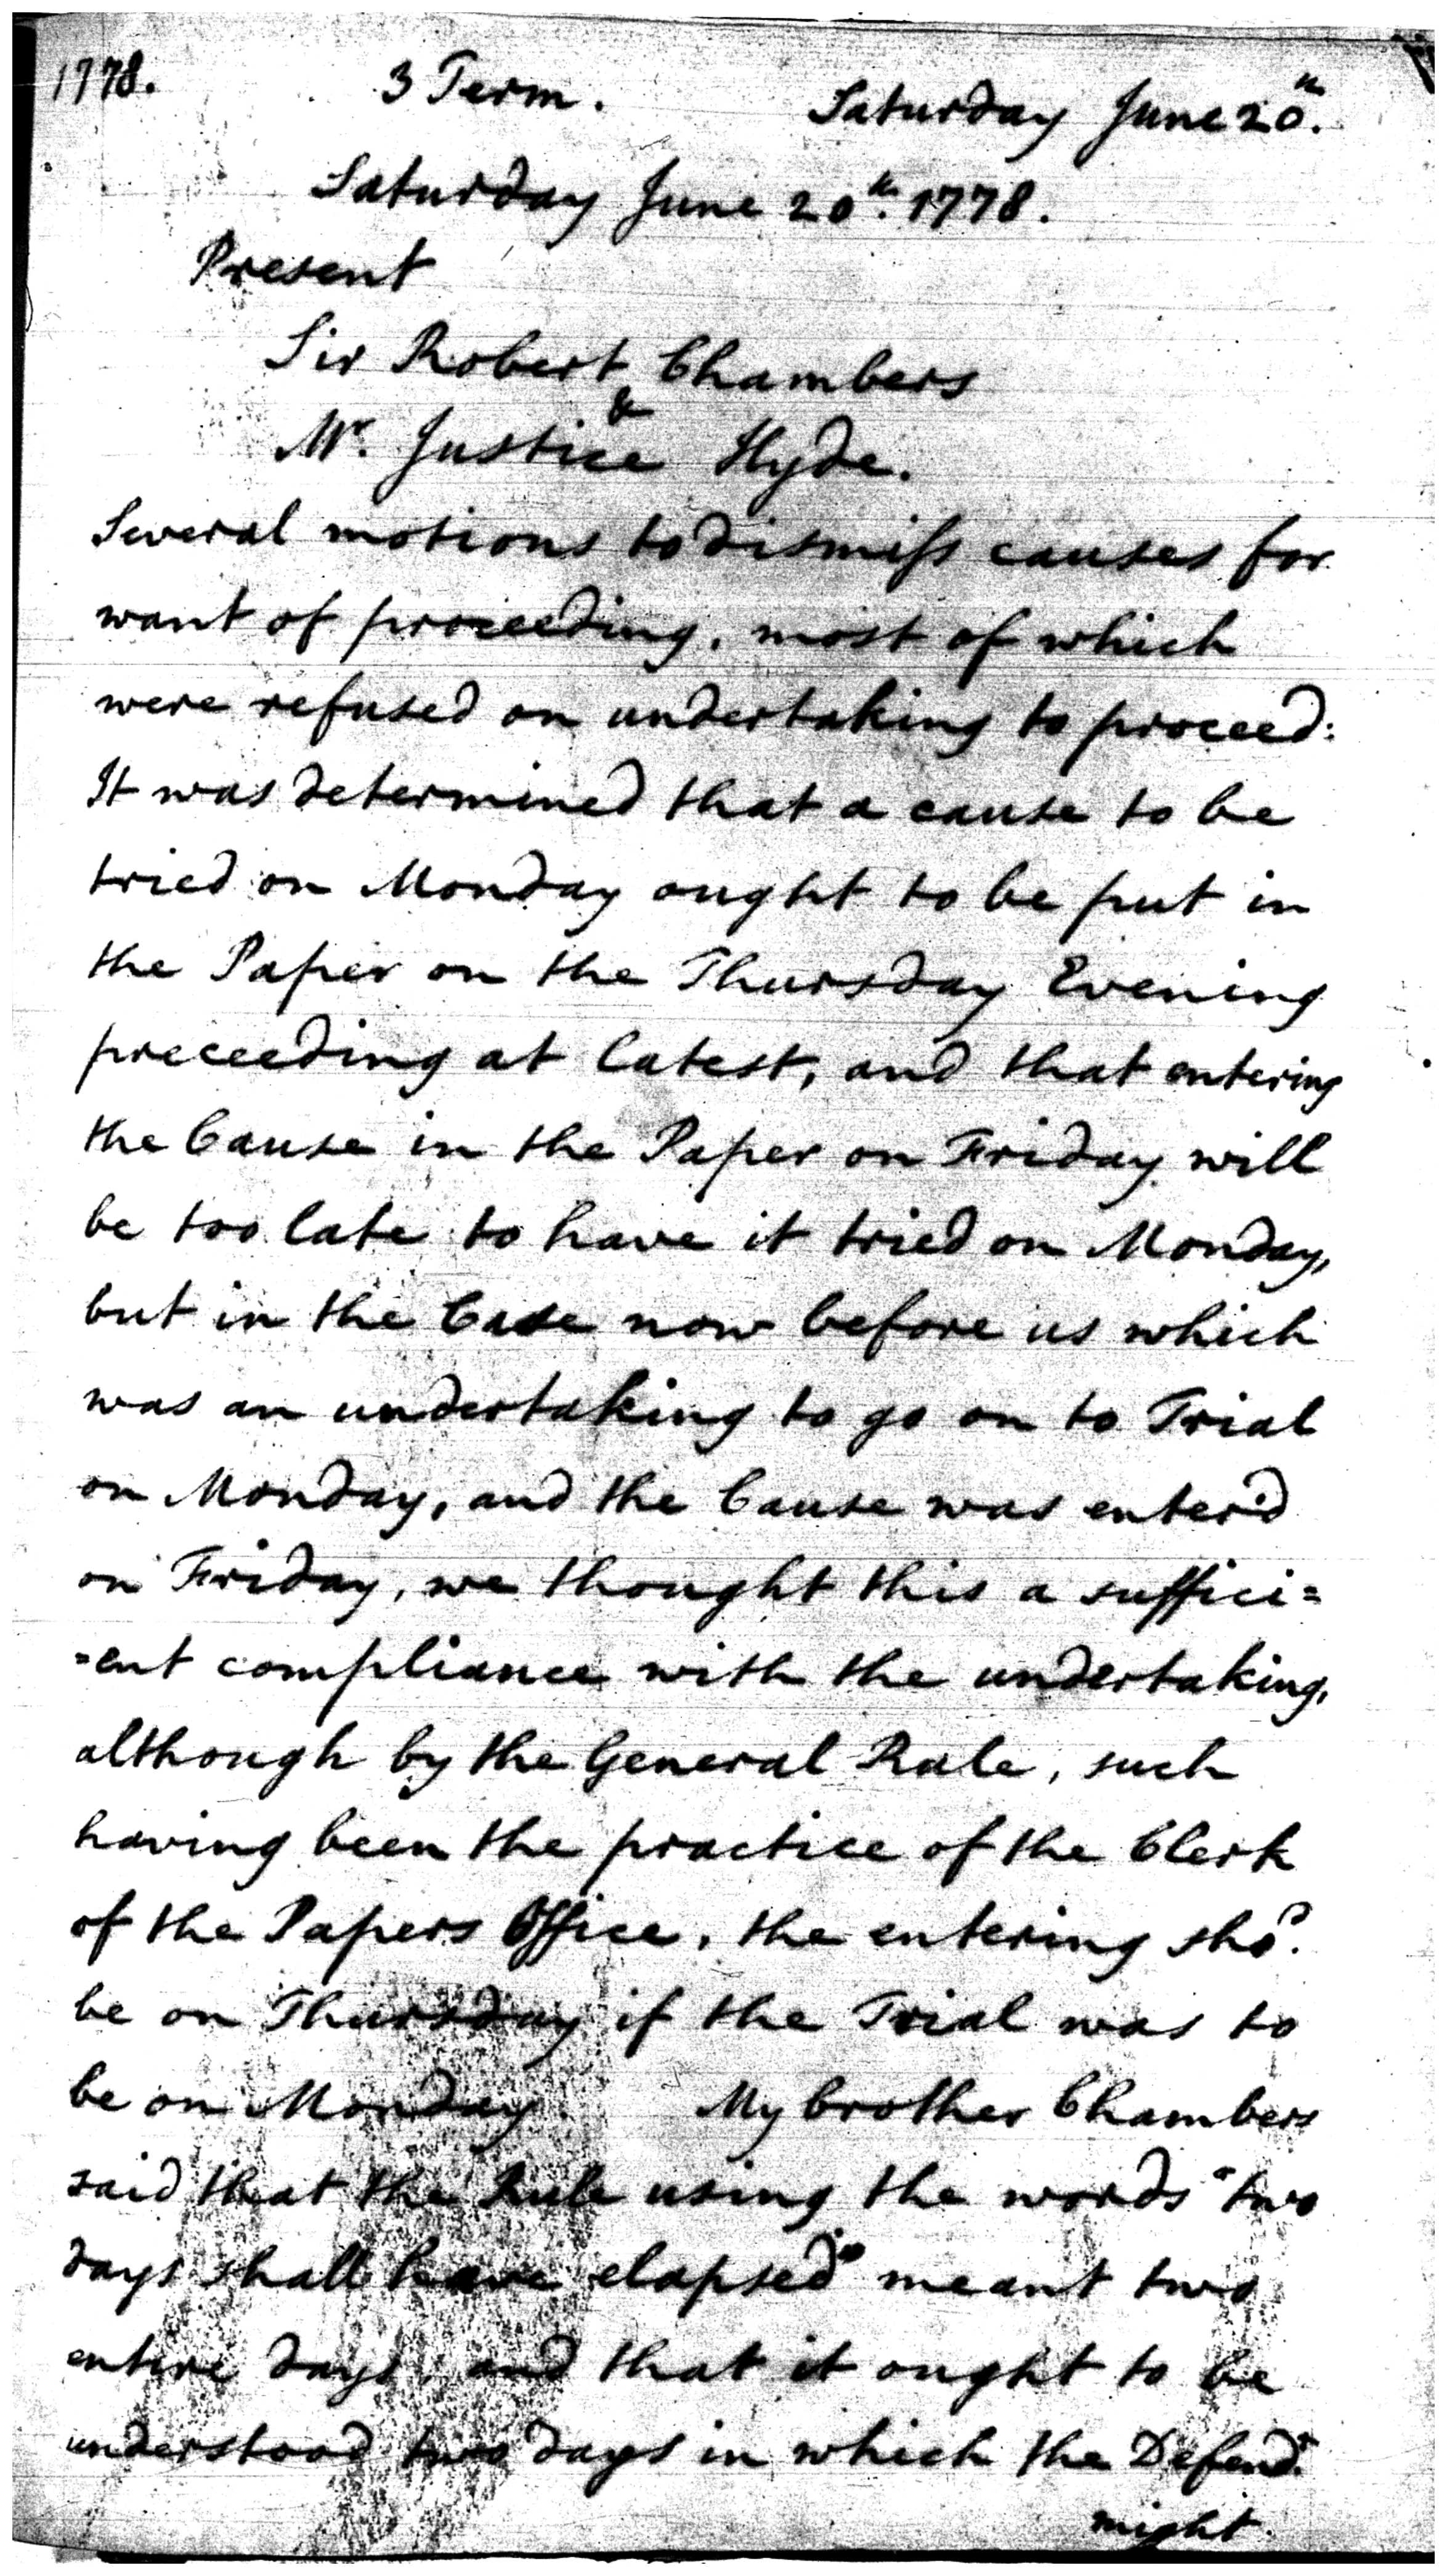 1778. 3 Term. Saturday June 20th.
Saturday June 20th. 1778.
Present
Sir Robert Chambers
&
Mr. Justice Hyde.
Several motions to dismiss causes for
want of proceeding, most of which
were refused on undertaking to proceed:
It was determined that a cause to be
tried on Monday ought to be put in
the Paper on the Thursday Evening
preceeding at latest, and that entering
the Cause in the Paper on Friday will
be too late to have it tried on Monday,
but in the Case now before us which
was an undertaking to go on to Trial
on Monday, and the Cause was enter'd
on Friday, we thought this a suffici=
=ent compliance with the undertaking,
although by the General Rule, such
having been the practice of the Clerk
of the Papers Office, the entering shod.
be on Thursday if the Trial was to
be on Monday. My brother Chambers
said that the Rule using the words "two
days shall have elapsed" meant two
entire days, and that it ought to be
understood two days in which the Defendt.
might